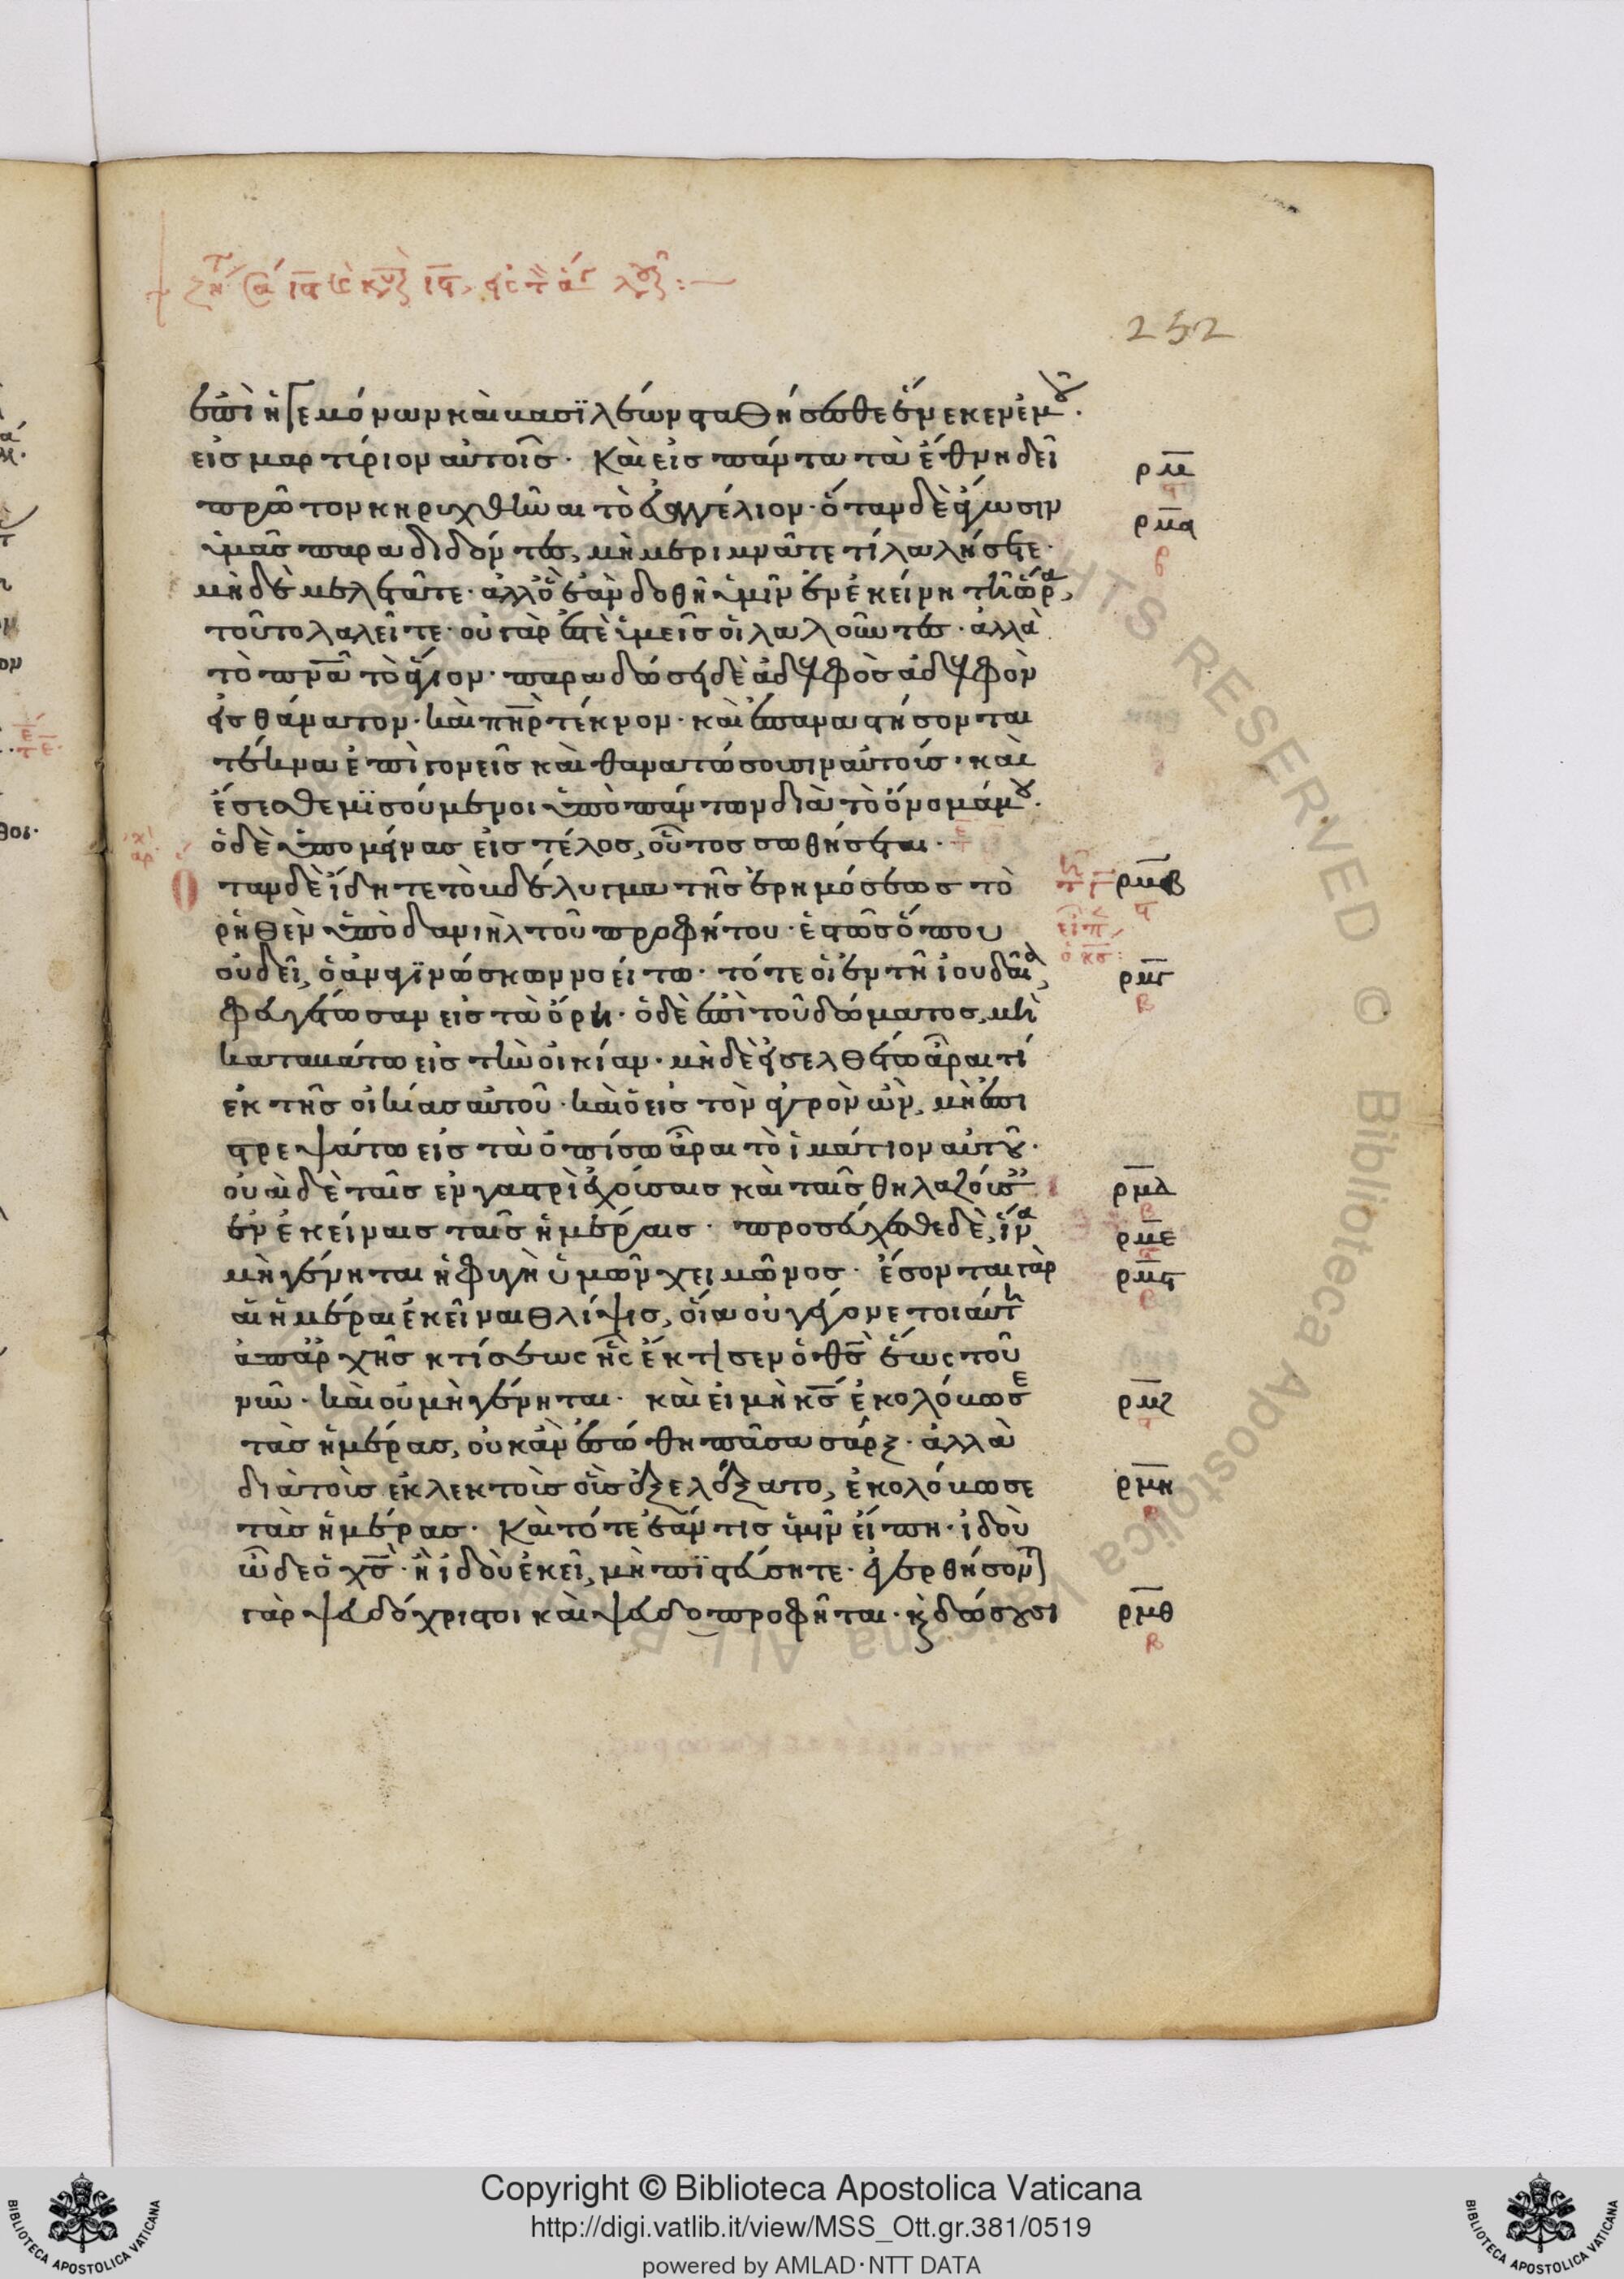 252
ἐπὶ ἡγεμόνων καὶ βασϊλέων σταθήσεσθε ἕνεκεν ἐμοῦ·
εἰσ μαρτίριον αὐτοῖσ· Καὶ εἰσ πάντα τὰ ἔθνη δεῖ
ρμ
πρῶτον κηρυχθῆναι τὸ εὐαγγέλιον· ὅταν δὲ ἄγωσιν
ρμα
β
ὑμᾶσ παραδιδόντεσ, μὴ μεριμνᾶτε τί λαλήσετε·
μὴ δὲ μελετᾶτε· ἀλλ ὃ ἐὰν δοθῆ ὑμῖν ἐν ἐκείνη τῆ ὥρα,
τοῦτο λαλεῖτε· οὐ γάρ ἐστὲ ὑμεῖσ οἱ λαλοῦντεσ· ἀλλὰ
τὸ πνᾶ τὸ ἅγιον· παραδώσει δὲ ἀδελφὸσ ἀδελφὸν
εἰσ θάνατον· καὶ πηρ τέκνον· καὶ ἐπαναστήσονται
τέκνα ἐπὶ γονεῖσ καὶ θανατώσουσιν αὐτούσ· καὶ
ἔσεσθε μϊσούμενοι ὑπὸ πάντων διὰ τὸ ὄνομά μου·
ὁ δὲ ὑπομείνασ εἰσ τέλοσ, οὗτοσ σωθήσεται·
Ὅταν δὲ ἴδητε τὸ βδέλυγμα τῆσ ἐρημόσεωσ τὸ
ρμβ
ρηθὲν ὑπὸ δανιὴλ τοῦ προφήτου· ἑστὼσ ὅπου
οὐ δεῖ, ὁ ἀναγϊνώσκων νοείτω· τότε οἱ ἐν τῆ ἰουδαία,
ρμγ
β
φευγέτωσαν εἰσ τὰ ὄρη· ὁ δὲ ἐπὶ τοῦ δώματοσ, μὴ
καταβάτω εἰσ τὴν οἰκίαν· μὴ δὲ εἰσελθέτω ἆραι τί
ἐκ τῆσ οἰκίασ αὐτοῦ· καὶ ὁ εἰσ τὸν ἀγρὸν ὢν, μὴ ἐπι
στρεψάτω εἰσ τὰ ὀπίσω ἆραι τὸ ἱμάτιον αὐτοῦ·
οὐαὶ δὲ ταῖσ ἐν γαστρὶ ἐχούσαισ καὶ ταῖσ θηλαζούσαισ
ρμδ
β
ἐν ἐκείναισ ταῖσ ἡμέραισ· προσεύχεσθε δὲ, ἵνα
ρμε
μὴ γένηται ἡ φυγὴ ὑμῶν χειμῶνοσ· ἔσονται γὰρ
ρμϛ
αἱ ἡμέραι ἐκεῖναι θλίψισ, οἵα οὐ γέγονε τοιαύτη
ἀπ ἀρχῆσ κτίσεως ἧς ἔκτισεν ὁ θσ ἕως τοῦ
νῦν· καὶ οὐ μὴ γένηται· καὶ εἰ μὴ κσ ἐκολόβωσε
ρμζ
τὰσ ἡμέρασ, οὐκ ἂν ἐσώθη πᾶσα σάρξ· ἀλλὰ
διὰ τοὺσ ἐκλεκτοὺσ οὓσ ἐξελέξατο, ἐκολόβωσε
ρμη
τὰσ ἡμέρασ· Καὶ τότε ἐάν τισ ὑμῖν εἴπη· ἰδοὺ
ὧδε ὁ χσ· ἢ ἰδοὺ ἐκεῖ, μὴ πϊστεύσητε· ἐγερθήσονται
γὰρ ψευδόχριστοι καὶ ψευδοπροφῆται· καὶ δώσουσι
ρμθ
β
Copyright © Biblioteca Apostolica Vaticana
http://digi.vatlib.it/view/MSS_Ott.gr.381/0519
powered by AMLAD·NTT DATA
BIBLIOTECA APOSTOLICA VATICANA
BIBLIOTECA APOSTOLICA VATICANA